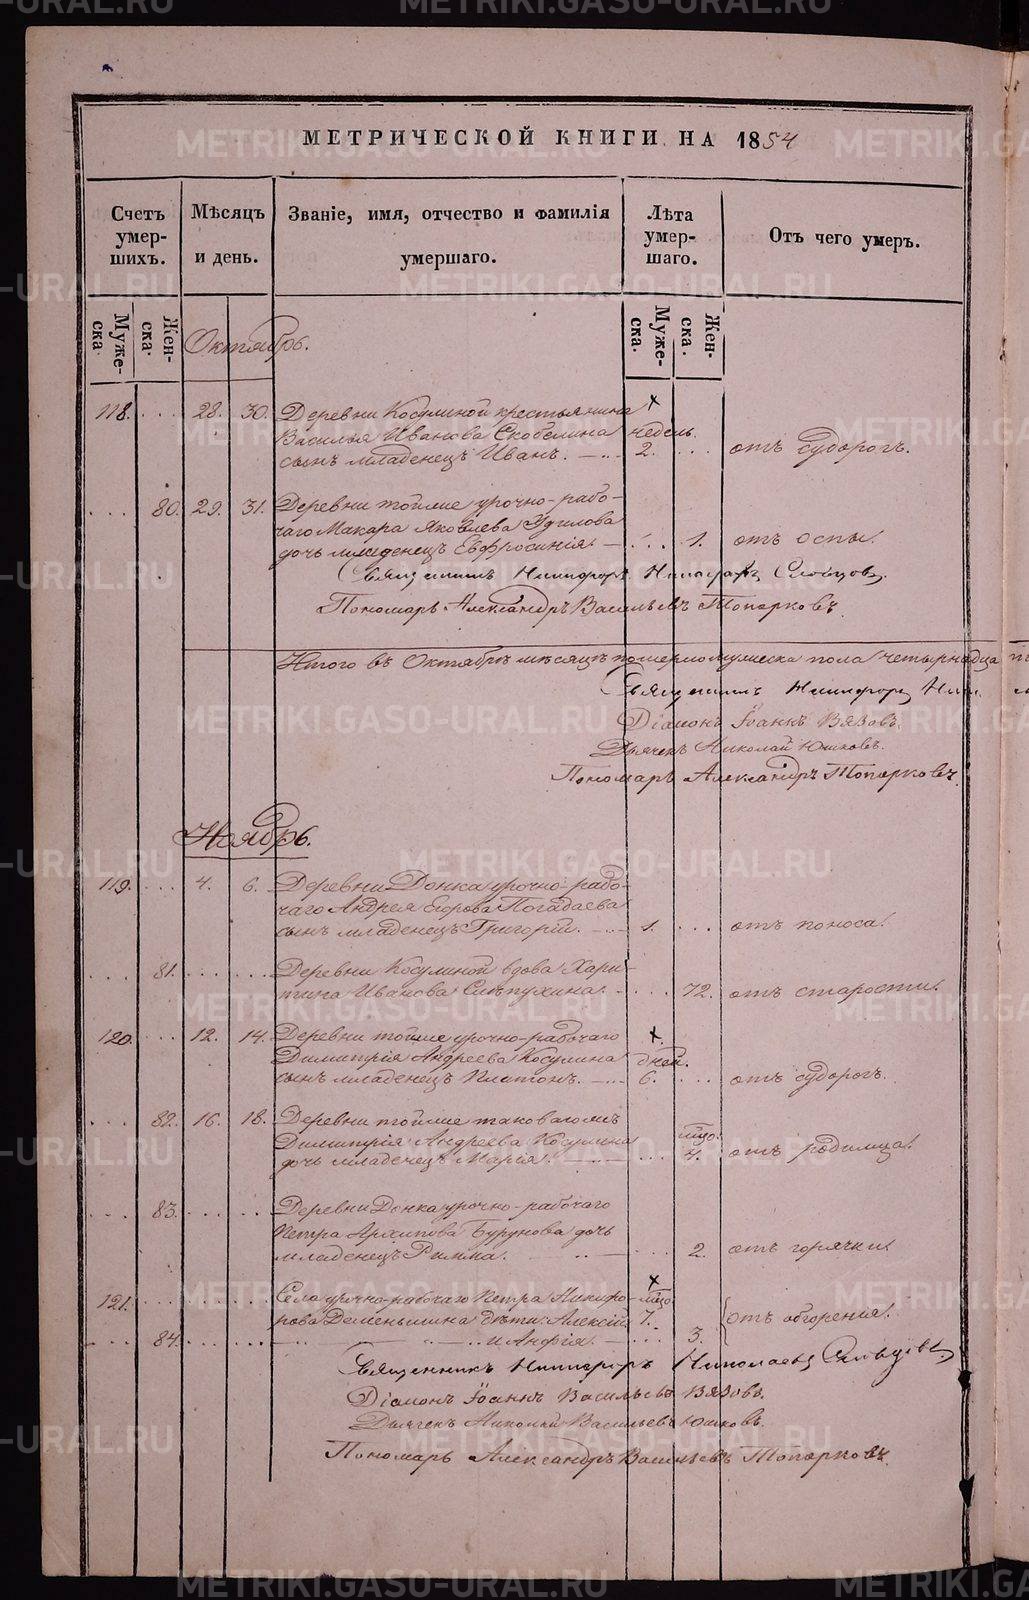 МЕТРИЧЕСКОЙ КНИГИ НА 1854
Счетъ умершихъ.
Мѣсяцъ и день.
Званіе, имя, отчество и фамилія умершаго.
Лѣта умершаго.
Отъ чего умеръ.
Мужеска.
Женска.
Мужеска.
Женска.
Октябрь.
118. 28. 30. Деревни Косулиной крестьянина
Василья Иванова Скобелина недель
сынъ младенецъ Иванъ. 2. отъ судорогъ.
80. 29. 31. Деревни тойже урочно-рабо-
чаго Макара Яковлева
дочь младенецъ Евфросинія. 1. отъ оспы.
Священникъ Никифоръ Словцовъ.
Пономарь Александръ Васильевъ Топорковъ.
Итого въ Октябрѣ мѣсяцѣ померло мужеска пола четырнадца
Священникъ Никифоръ
Діаконъ Іоаннъ Вязовъ.
Дьячекъ Николай Юшковъ.
Пономарь Александръ Топорковъ.
Ноябрь.
119. 4. 6. Деревни Донка урочно-рабо-
чаго Андрея Егорова Погадаева
сынъ младенецъ Григорій. 1. отъ поноса.
81. Деревни Косулиной вдова Хари-
тина Иванова Слѣпухина. 72. отъ старости.
120. 12. 14. Деревни тойже урочно-рабочаго
Димитрія Андреева Косулина дней.
сынъ младенецъ Платонъ. 6. отъ судорогъ.
82. 16. 18. Деревни тойже таковагожъ
Димитрія Андреева Косулина
дочь младенецъ Марія. отъ родимца.
83. Деревни Донка урочно-рабочаго
Петра Архипова Бурунова дочь
младенецъ Римма. 2. отъ горячки.
121. Села урочно-рабочаго Петра Никифо-
рова Деменьшина дѣти: Алексій 7. отъ обгорения.
84. и Анфія. 3.
Священникъ Никифоръ Николаевъ Словцовъ.
Діаконъ Іоаннъ Васильевъ Вязовъ.
Дьячекъ Николай Васильевъ Юшковъ.
Пономарь Александръ Васильевъ Топорковъ.
METRIKI.GASO-URAL.RU